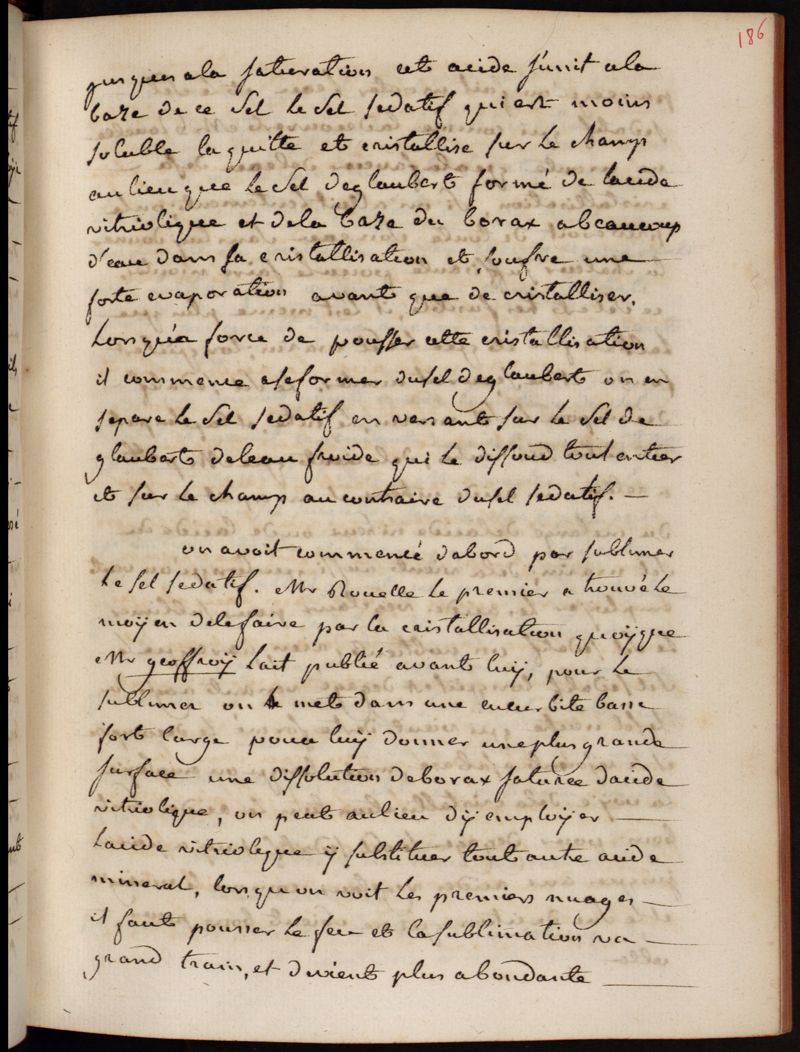 186
jusques a la saturation cet acide s'unit a la
baze de ce sel le sel sedatif qui est moins
soluble la quitte et cristallise sur le champ
au lieu que le sel deglaubert formé de lacide
vitriolique et dela baze du borax abeaucoup
d'eau dans sa cristallisation et soufre une
forte evaporation avant que de cristalliser.
Lorsqu'a force de pousser cette cristallisation
il commence aseformer dusel deglaubert on en
separe le sel sedatif en versant sur le sel de
glaubert deleau froide qui le dissoud tout entier
et sur le champ au contraire dusel sedatif. —
on avoit commencé dabord par sublimer
le sel sedatif. Mr Rouelle le premier a trouvé le
moÿen delefaire par la cristallisation quoÿque
Mr geoffroÿ lait publié avant luÿ, pour le
sublimer on le met dans une cucurbite basse
fort large pour luÿ donner uneplusgrande
surface une dissolution deborax saturée dacide
vitriolique, on peut aulieu dÿ emploÿer —
lacide vitriolique ÿ substituer tout autre acide
mineral, lorsqu on voit les premiers nuages —
il faut pousser le feu et lasublimation va —
grand train, et devient plus abondante —